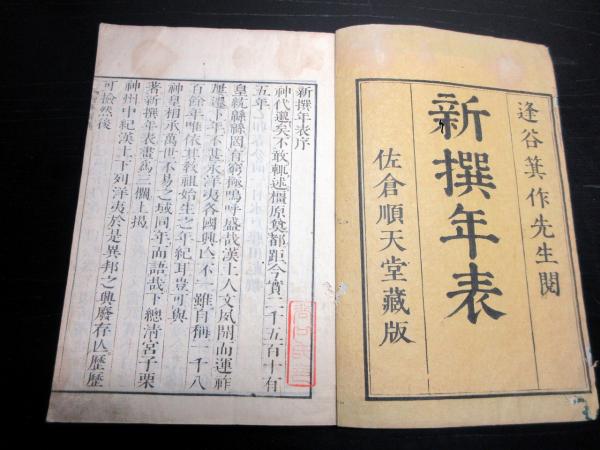 逢谷箕作先生閱
新撰年表
佐倉順天堂藏版
新撰年表序
神代邈矣不敢輒述橿原奠都距今實二千五百十有
五年
皇統緜緜固有窮極嗚呼盛哉漢土人文夙開而運祚
遷下年不甚永洋夷各國興亾不一雖自稱一千八
百餘年唯依其敎祖始生之年紀耳豈可與
神皇相承萬世不易之域同年而語哉下總淸宮子栗
著新撰年表畫爲三欄上揭
神州中紀漢土下列洋夷於是異邦之興廢存亾歷歷
可撿然後